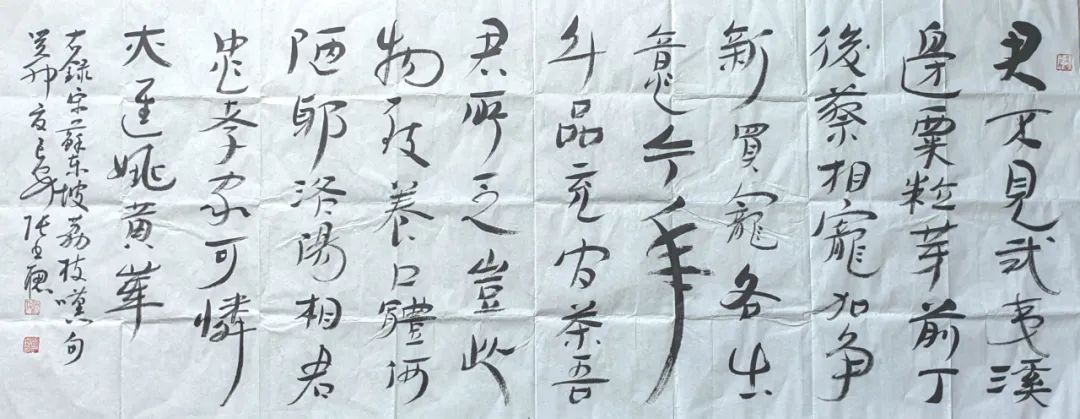 君不見武夷溪
邊粟粒芽前丁
後蔡相寵加争
新買寵各出
意今年
斗品充官茶吾
君所乏豈此
物致養口體何
陋耶洛陽相君
忠孝家可憐
亦進姚黄華
右録宋蘇东坡荔枝嘆句
癸卯夏